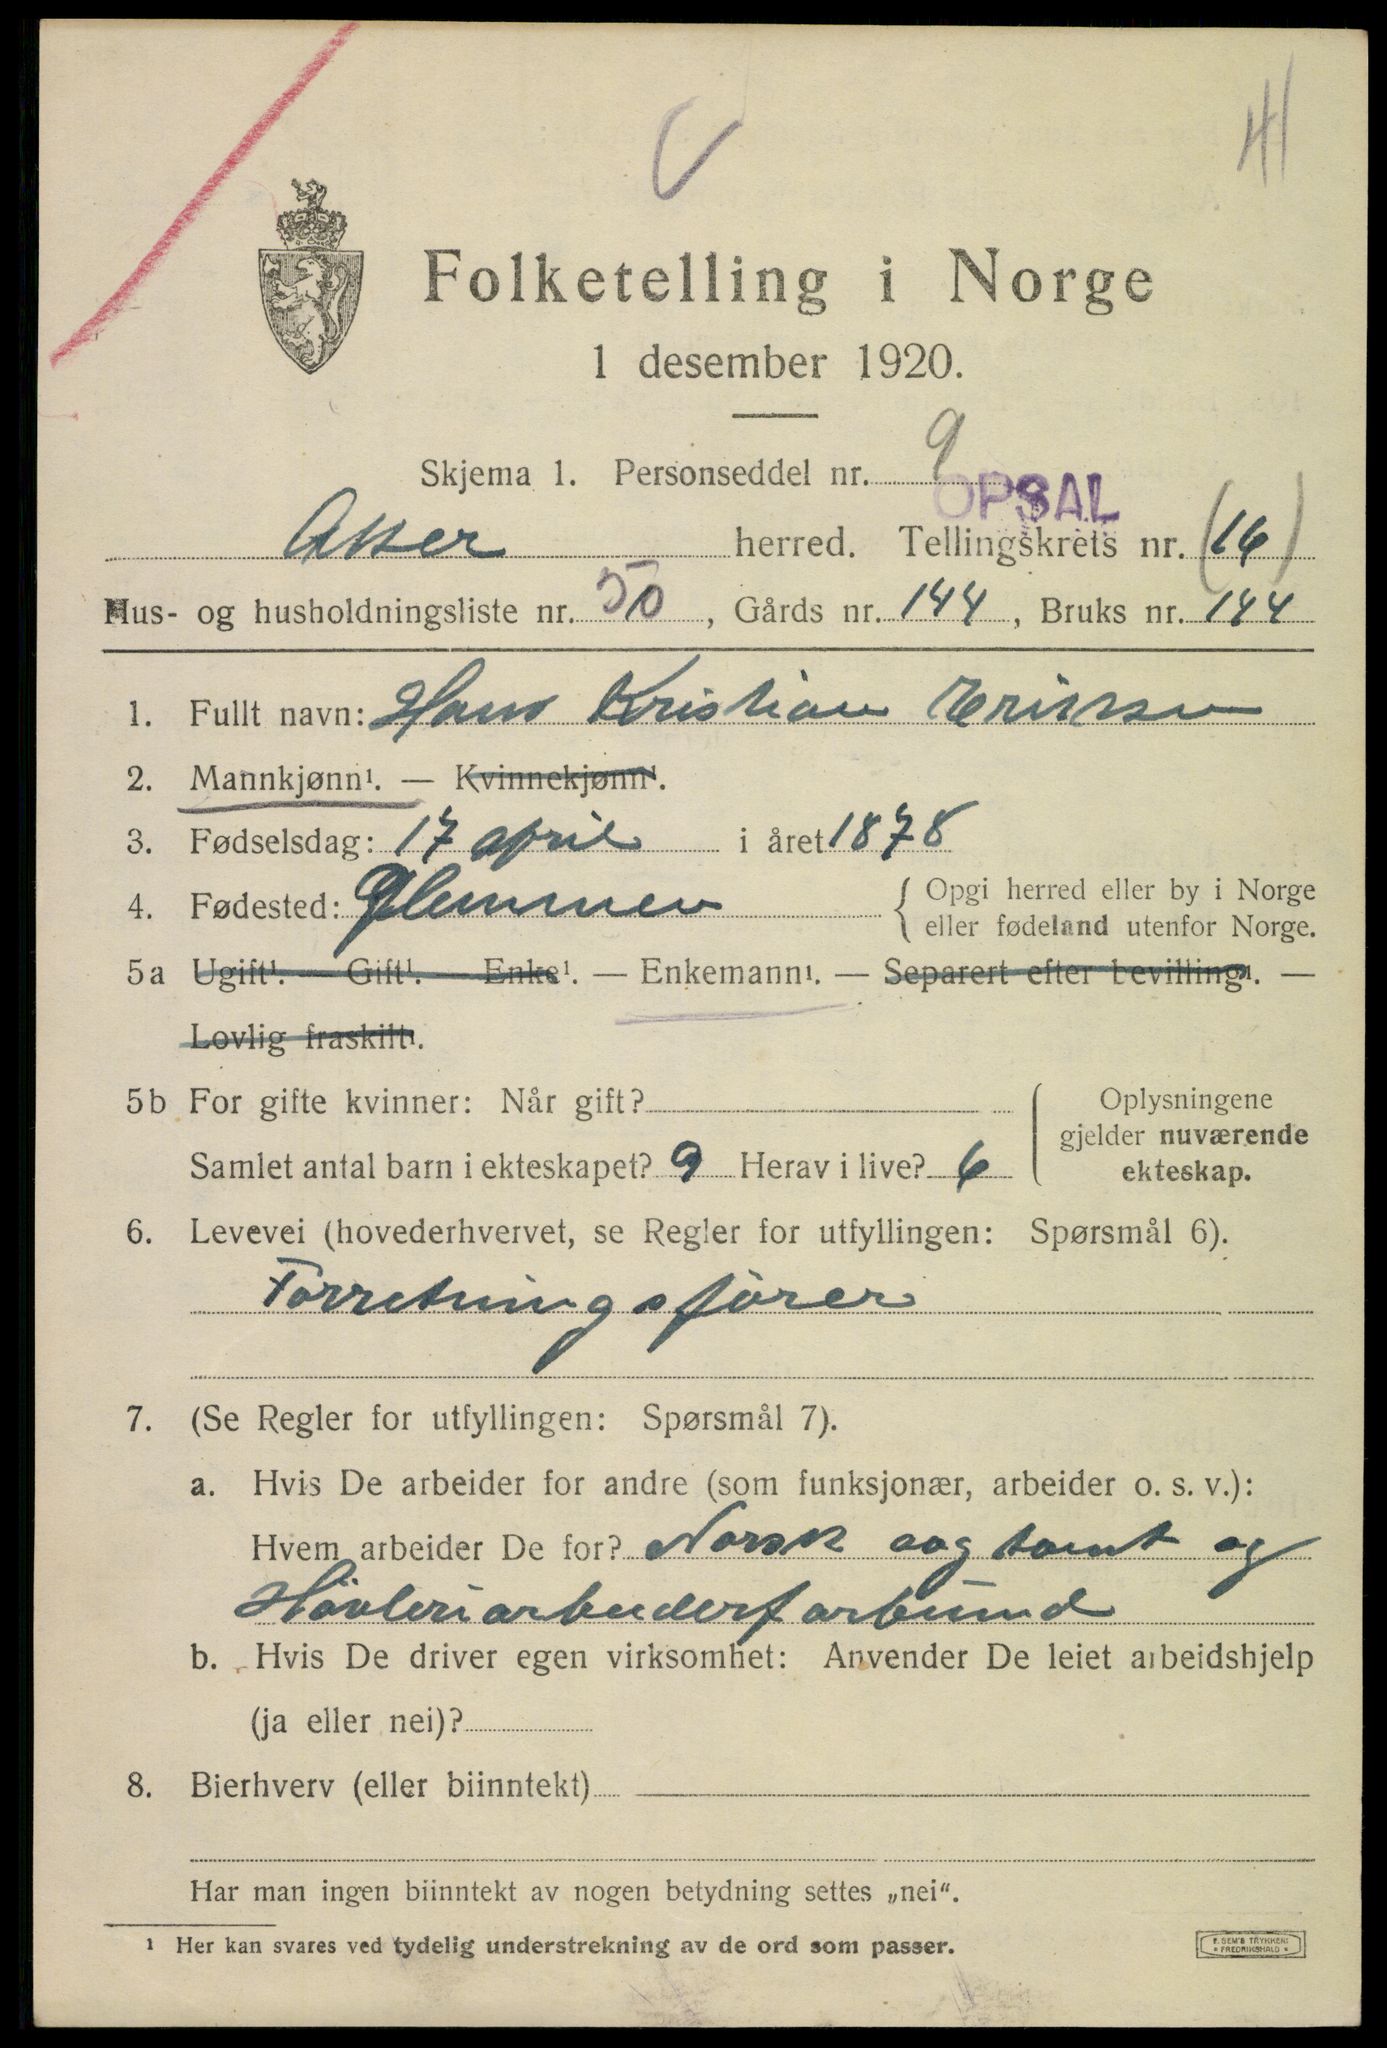 Folketelling i Norge
1 desember 1920.
Skjema 1. Personseddel nr. 9
OPSAL
Aker herred. Tellingskrets nr. (16)
Hus- og husholdningsliste nr. 50, Gårds nr. 144, Bruks nr. 144
1. Fullt navn: Hans Kristian Eriksen
2. Mannkjønn¹. — Kvinnekjønn¹.
3. Fødselsdag: 17 april i året 1878
4. Fødested: Glemmen { Opgi herred eller by i Norge
eller fødeland utenfor Norge.
5a Ugift¹. — Gift¹. — Enke¹. — Enkemann¹. — Separert efter bevilling¹. —
Lovlig fraskilt¹.
5b For gifte kvinner: Når gift?
Samlet antal barn i ekteskapet? 9 Herav i live? 6
Oplysningene
gjelder nuværende
ekteskap.
6. Levevei (hovederhvervet, se Regler for utfyllingen: Spørsmål 6).
Forretningsfører
7. (Se Regler for utfyllingen: Spørsmål 7).
a. Hvis De arbeider for andre (som funksjonær, arbeider o. s. v.):
Hvem arbeider De for? Norsk sag tomt og
Høvleriarbeiderforbund
b. Hvis De driver egen virksomhet: Anvender De leiet arbeidshjelp
(ja eller nei)?
8. Bierhverv (eller biinntekt) —
Har man ingen biinntekt av nogen betydning settes „nei“.
¹ Her kan svares ved tydelig understrekning av de ord som passer.
F. SEM'S TRYKKERI
FREDRIKSHALD